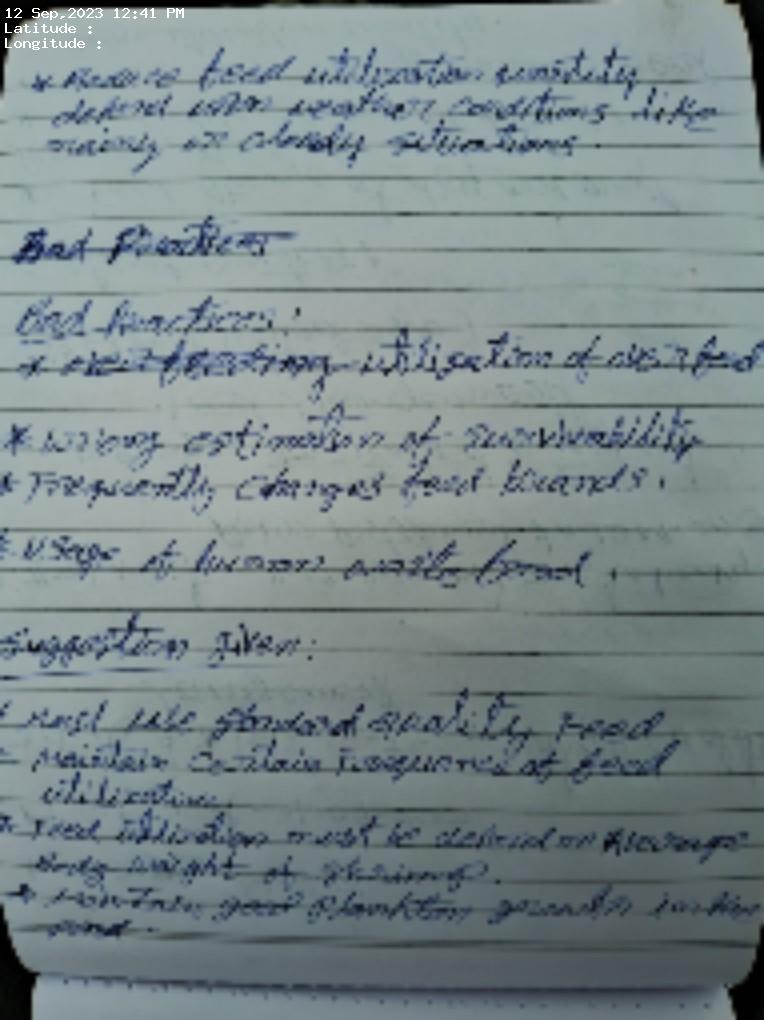 12 Sep,2023 12:41 PM
Latitude :
Longitude :
* Reduce feed utilization quantity
depend upon weather conditions like
rainy or cloudy situations.
Bad Practices
Bad Practices:
* over feeding utilization of over feed
* wrong estimation of survivability
* Frequently changes feed brands.
* usage of human waste food.
Suggestion given:
* must use standard quality Feed
* maintain certain frequence of feed
utilization.
* Feed utilization must be depend on Average
body weight of shrimp.
* maintain good plankton growth in the
pond.